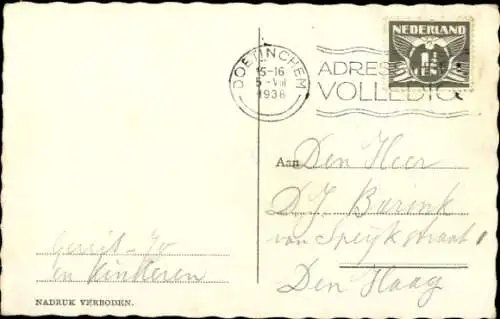 NEDERLAND
1½
CENT
DOETINCHEM
15-16
5-VIII
1938
ADRES
VOLLEDIG
Aan Den Heer
D.J. Burink
van Speijkstraat 1
Den Haag
Gerrit-Jo
en Kinderen
NADRUK VERBODEN.